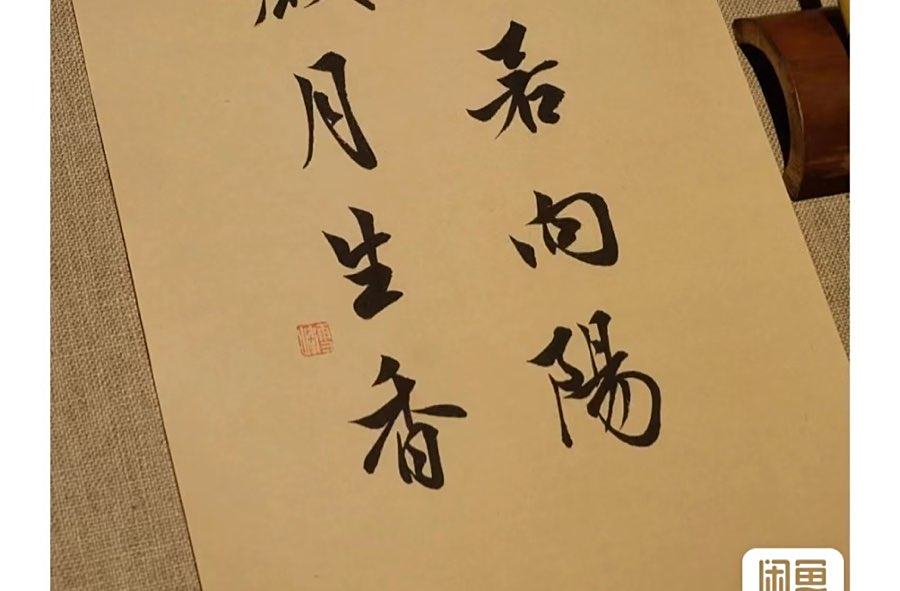 若向陽
歲月生香
闲鱼